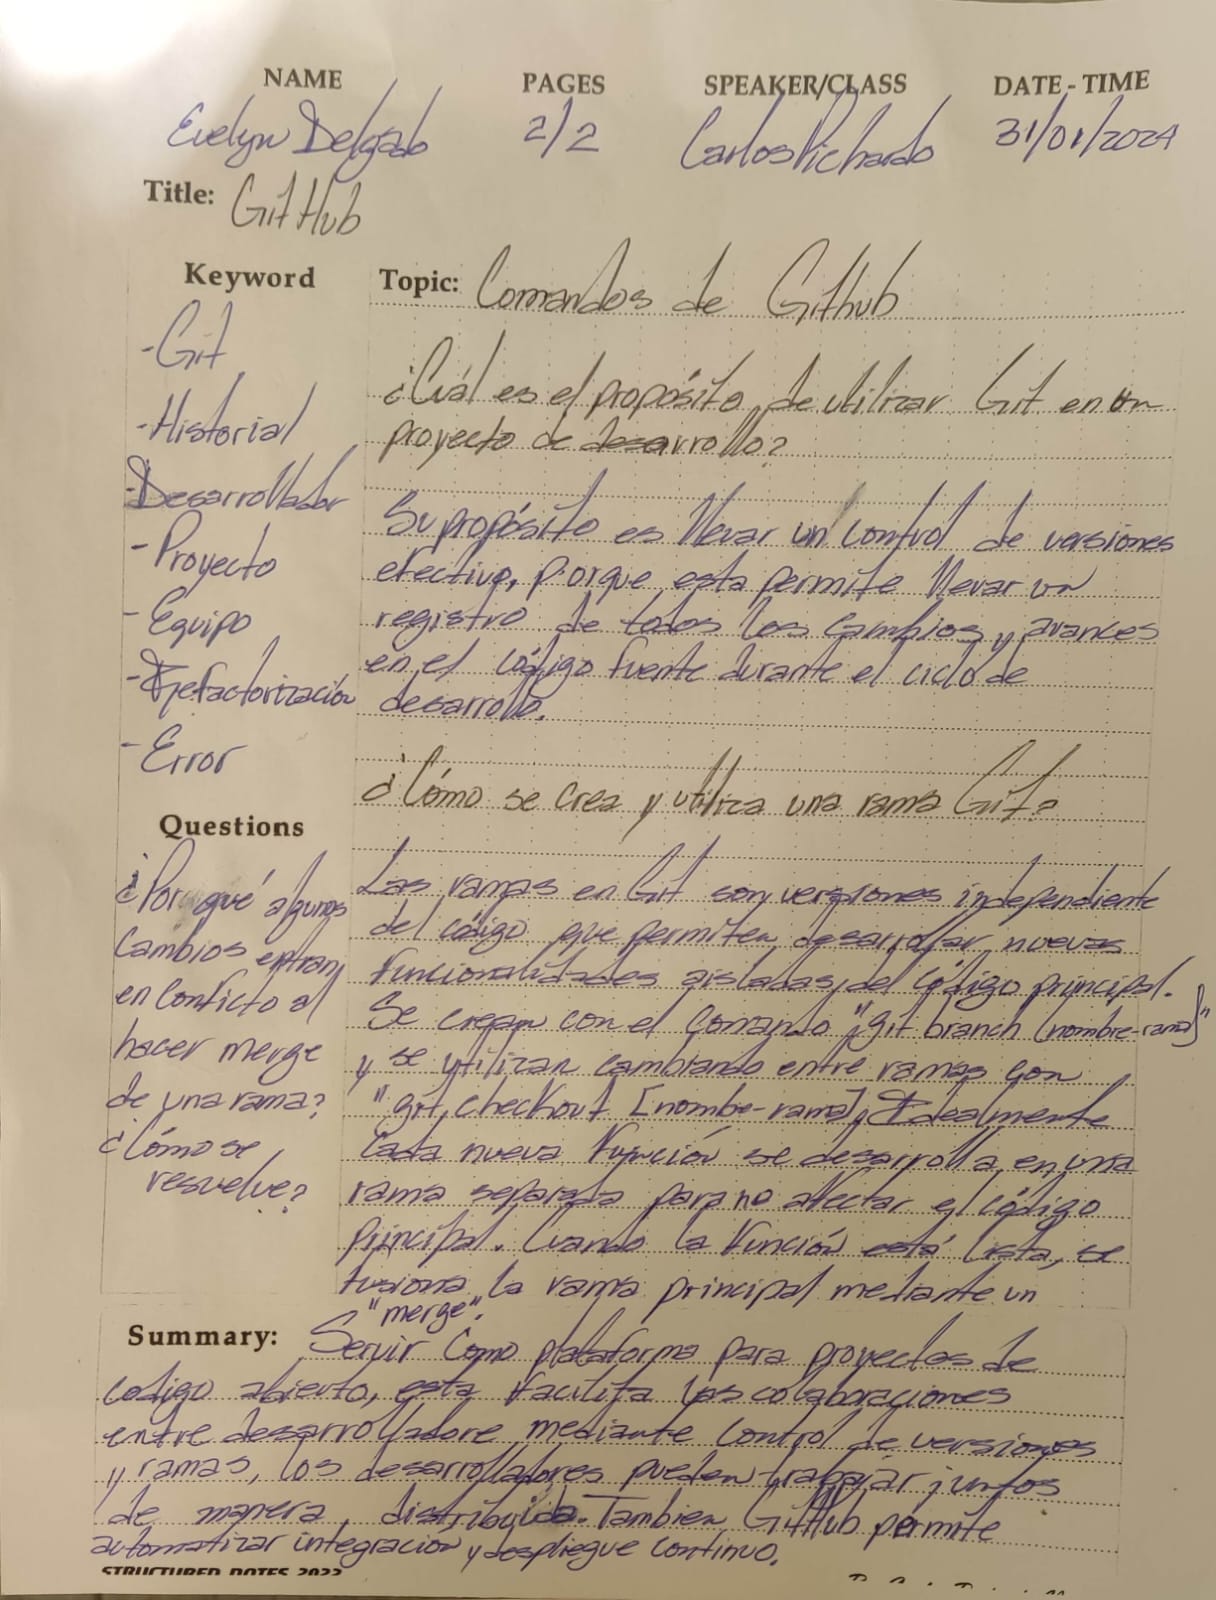 NAME PAGES SPEAKER/CLASS DATE - TIME
Evelyn Delgado 2/2 Carlos Pichardo 31/01/2024
Title: GitHub
Keyword
- Git
- Historial
- Desarrollador
- Proyecto
- Equipo
- Refactorización
- Error
Questions
¿Por qué algunos
cambios entran
en conficto al
hacer merge
de una rama?
¿Cómo se
resuelve?
Topic: Comandos de Github
¿Cuál es el propósito de utilizar Git en un
proyecto de desarrollo?
Su propósito es llevar un control de versiones
efectivo, porque esta permite llevar un
registro de todos los cambios y avances
en el código fuente durante el ciclo de
desarrollo.
¿Cómo se crea y utiliza una rama Git?
Las ramas en Git son versiones independiente
del código que permiten desarrollar nuevas
funcionalidades aisladas del código principal.
Se crean con el comando "git branch [nombre-rama]"
y se utilizan cambiando entre ramas con
"git checkout [nombe-rama]. Idealmente
cada nueva función se desarrolla en una
rama separada para no afectar el código
principal. Cuando la función está lista, se
fusiona la rama principal mediante un
"merge".
Summary: Servir como plataforma para proyectos de
codigo abierto, esta facilita las colaboraciones
entre desarrolladore mediante control de versiones
y ramas, los desarrolladores pueden trabajar juntos
de manera distribuida. Tambien GitHub permite
automatizar integracion y despliegue continuo.
STRUCTURED NOTES 2022